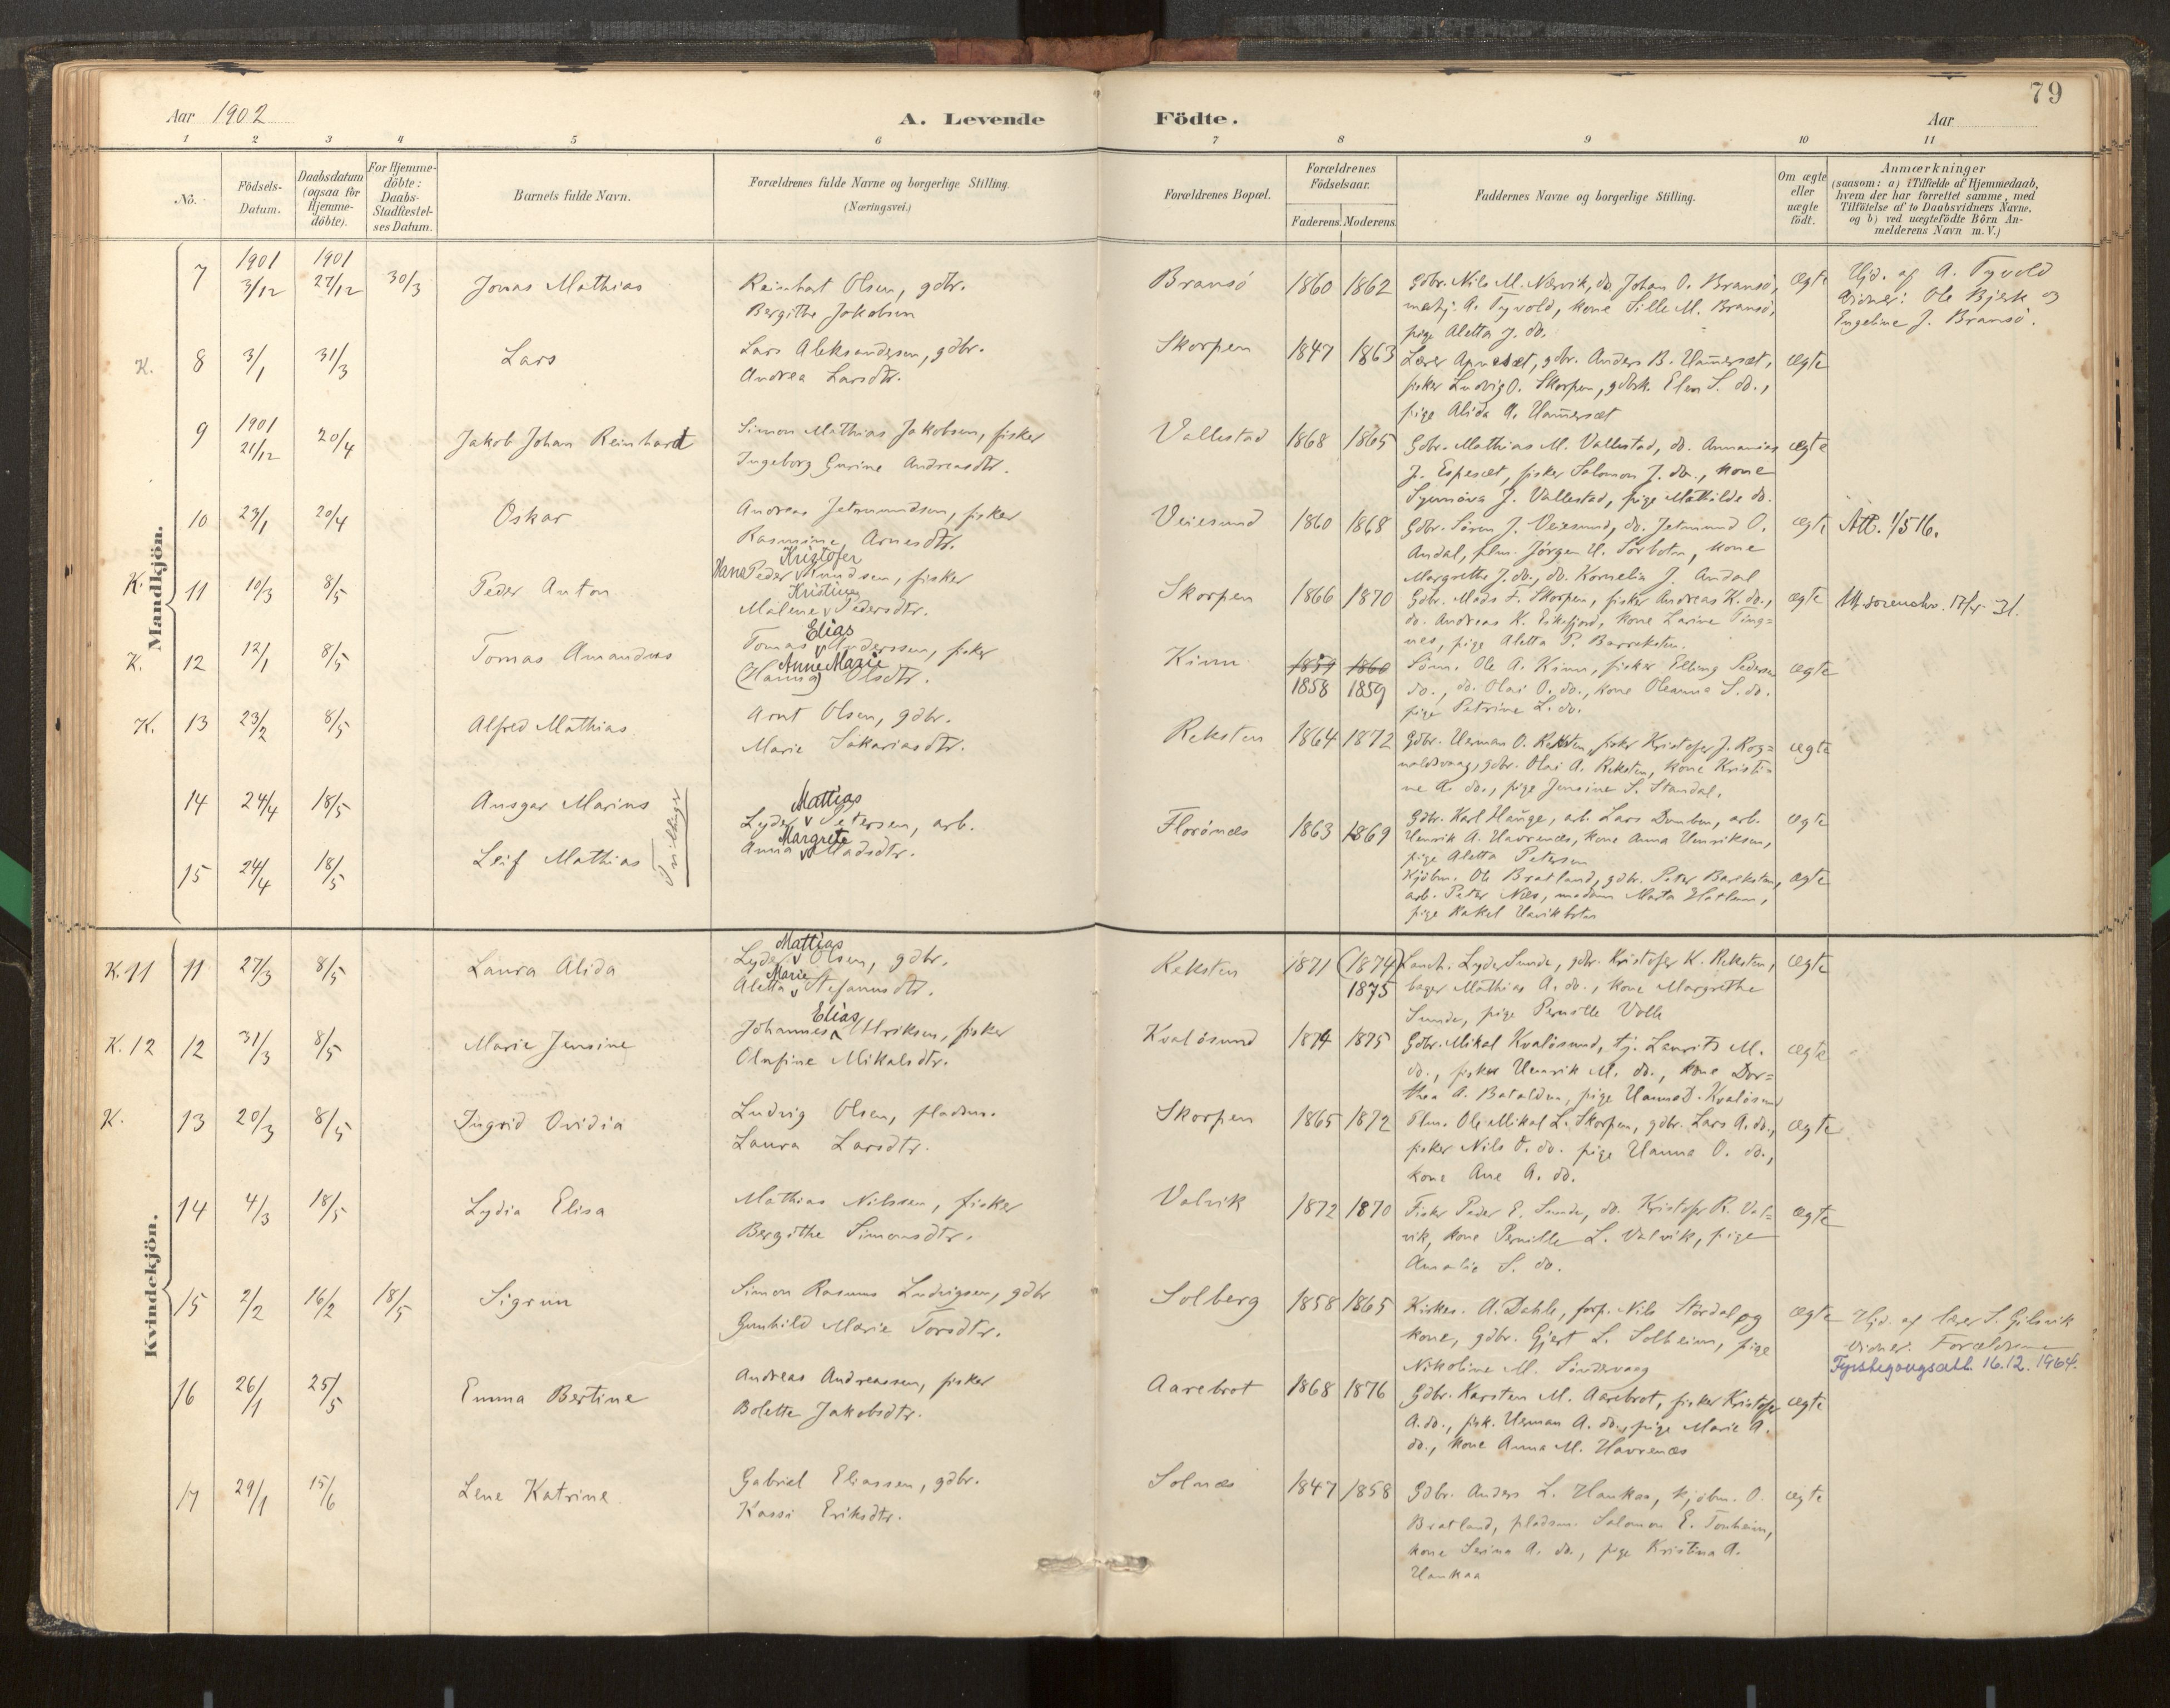 79
Aar 1902
A. Levende
Födte.
Aar
1 2 3 4 5 6 7 8 9 10 11
No.
Födsels-
Datum.
Daabsdatum
(ogsaa for
Hjemme-
döbte).
For Hjemme-
döbte:
Daabs-
Stadfæstel-
ses Datum.
Barnets fulde Navn.
Forældrenes fulde Navne og borgerlige Stilling.
(Næringsvei.)
Forældrenes Bopæl.
Forældrenes
Födselsaar.
Faderens. Moderens.
Faddernes Navne og borgerlige Stilling.
Om ægte
eller
uægte
födt.
Anmærkninger
(saasom: a) i Tilfælde af Hjemmedaab,
hvem der har forrettet samme, med
Tilföielse af to Daabsvidners Navne,
og b) ved uægtefödte Börn An-
melderens Navn m. V.)
Mandkjön.
7 1901 3/12 1901 27/12 30/3 Jonas Mathias
Reinhart Olsen, gdbr.
Bergithe Jakobsen
Bransö 1860 1862
Gdbr. Nils M. Nærvik, do. Johan O. Bransö,
A. Tyvold, kone Sille M. Bransö,
pige Aletta J. do.
ægte
Hjd. af A. Tyvold
Vidner: Ole Bjerk og
Engeline J. Bransö.
K. 8 3/1 31/3 Lars
Lars Aleksandersen, gdbr.
Andrea Larsdtr.
Skorpen 1847 1863
Lærer Apneset, gdbr. Anders B. Ham̄erset,
fisker Ludvig O. Skorpen, gdbrk. Elen S. do.,
pige Alida A. Ham̄erset
ægte
9 1901 21/12 20/4 Jakob Johan Reinhardt
Simon Mathias Jakobsen, fisker
Ingeborg Gurine Andreasdtr.
Vallestad 1868 1865
Gdbr. Mathias M. Vallestad, do. Annanias
J. Espeset, fisker Salomon J. do., kone
Synnöva J. Vallestad, pige Mathilde do.
ægte
10 23/1 20/4 Oskar
Andreas Jetmundsen, fisker
Rasmine Arnesdtr.
Veiesund 1860 1868
Gdbr. Sören J. Veiesund, do. Jetmund O.
Andal, plm. Jörgen H. Sörboten, kone
Margrethe J. do., do. Kornelia J. Andal
ægte
Att. 1/5 16.
K. 11 10/3 8/5 Peder Anton
Kristofer
Hans Peder Knudsen, fisker
Kristine
Malene Pedersdtr.
Skorpen 1866 1870
Gdbr. Mads F. Skorpen, fisker Andreas K. do.,
do. Andreas K. Eikefjord, kone Larine Ting=
nes, pige Aletta P. Barreksten.
ægte
K. 12 12/1 8/5 Tomas Amandus
Elias
Tomas Anderssen, fisker
Anne Marie
(Hanna) Olsdtr.
Kinn 1859 1860
1858 1859
Ole A. Kinn, fisker Elling Pedersen
do., do. Olai O. do., kone Oleanna S. do.
pige Petrine L. do.
ægte
K. 13 23/2 8/5 Alfred Mathias
Arnt Olsen, gdbr.
Marie Sakariasdtr.
Reksten 1864 1872
Gdbr. Herman O. Reksten, fisker Kristofer J. Rog=
naldsvaag, gdbr. Olai A. Reksten, kone Kristi=
ne A. do., pige Jensine S. Standal.
ægte
14 24/4 18/5 Ansgar Marius
15 24/4 18/5 Leif Mathias
Tvillinger
Mattias
Lyder Petersen, arb.
Margrete
Anna Madsdtr.
Florönæs 1863 1869
Gdbr. Karl Hauge, arb. Lars Domben, arb.
Henrik A. Havrenæs, kone Anna Henriksen,
pige Aletta Petersen
ægte
Kjöbm. Ole Bratland, gdbr. Peter Bareksten,
arb. Peter Næs, madam Marta Hatlem,
pige Rakel Havikboten
ægte
Kvindekjön.
K. 11 11 27/3 8/5 Laura Alida
Mattias
Lyder Olsen, gdbr.
Marie
Aletta Stefansdtr.
Reksten 1871 (1874)
1875
Landh. Lyder Sunde, gdbr. Kristofer K. Reksten,
bager Mathias A. do., kone Margrethe
Sunde, pige Pernille Volle
ægte
K. 12 12 31/3 8/5 Marie Jensine
Elias
Johannes Ulriksen, fisker
Olufine Mikalsdtr.
Kvalösund 1874 1875
Gdbr. Mikal Kvalösund, tj. Laurits M.
do., fisker Henrik M. do., kone Dor=
thea A. Batalden, pige Hanna D. Kvalösund
ægte
K. 13 20/3 8/5 Ingrid Ovidia
Ludvig Olsen, pladsm.
Laura Larsdtr.
Skorpen 1865 1872
Plm. Ole Mikal L. Skorpen, gdbr. Lars A. do.,
fisker Nils O. do. pige Hanna O. do.,
kone Ane A. do.
ægte
14 4/3 18/5 Lydia Elisa
Mathias Nilssen, fisker
Bergithe Simonsdtr.
Valvik 1872 1870
Fisker Peder E. Sunde, do. Kristofer R. Val=
vik, kone Pernille L. Valvik, pige
Amalie S. do.
ægte
15 2/2 16/2 18/5 Sigrun
Simon Rasmus Ludvigsen, gdbr
Gunhild Marie Torsdtr.
Solberg 1858 1865
Kirkes. A. Dahle, forp. Nils Stördal og
kone, gdbr. Gjert L. Solheim, pige
Nikoline M. Söndervaag
ægte
Hjd. af lærer S. Gilsvik
Vidner: Forældrene
Fyrstegangsatt. 16.12.1964.
16 26/1 25/5 Emma Bertine
Andreas Andreassen, fisker
Bolette Jakobsdtr.
Aarebrot 1868 1876
Gdbr. Karsten M. Aarebrot, fisker Kristofer
A. do., fisk. Herman A. do., pige Marie A.
do., kone Anna M. Havrenæs
ægte
17 29/1 15/6 Lene Katrine
Gabriel Eliassen, gdbr.
Kassi Eriksdtr.
Solnæs 1847 1858
Gdbr. Anders L. Haukaa, kjöbm. O.
Bratland, pladsm. Salomon E. Tonheim,
kone Serina A. do., pige Kristina A.
Haukaa
ægte